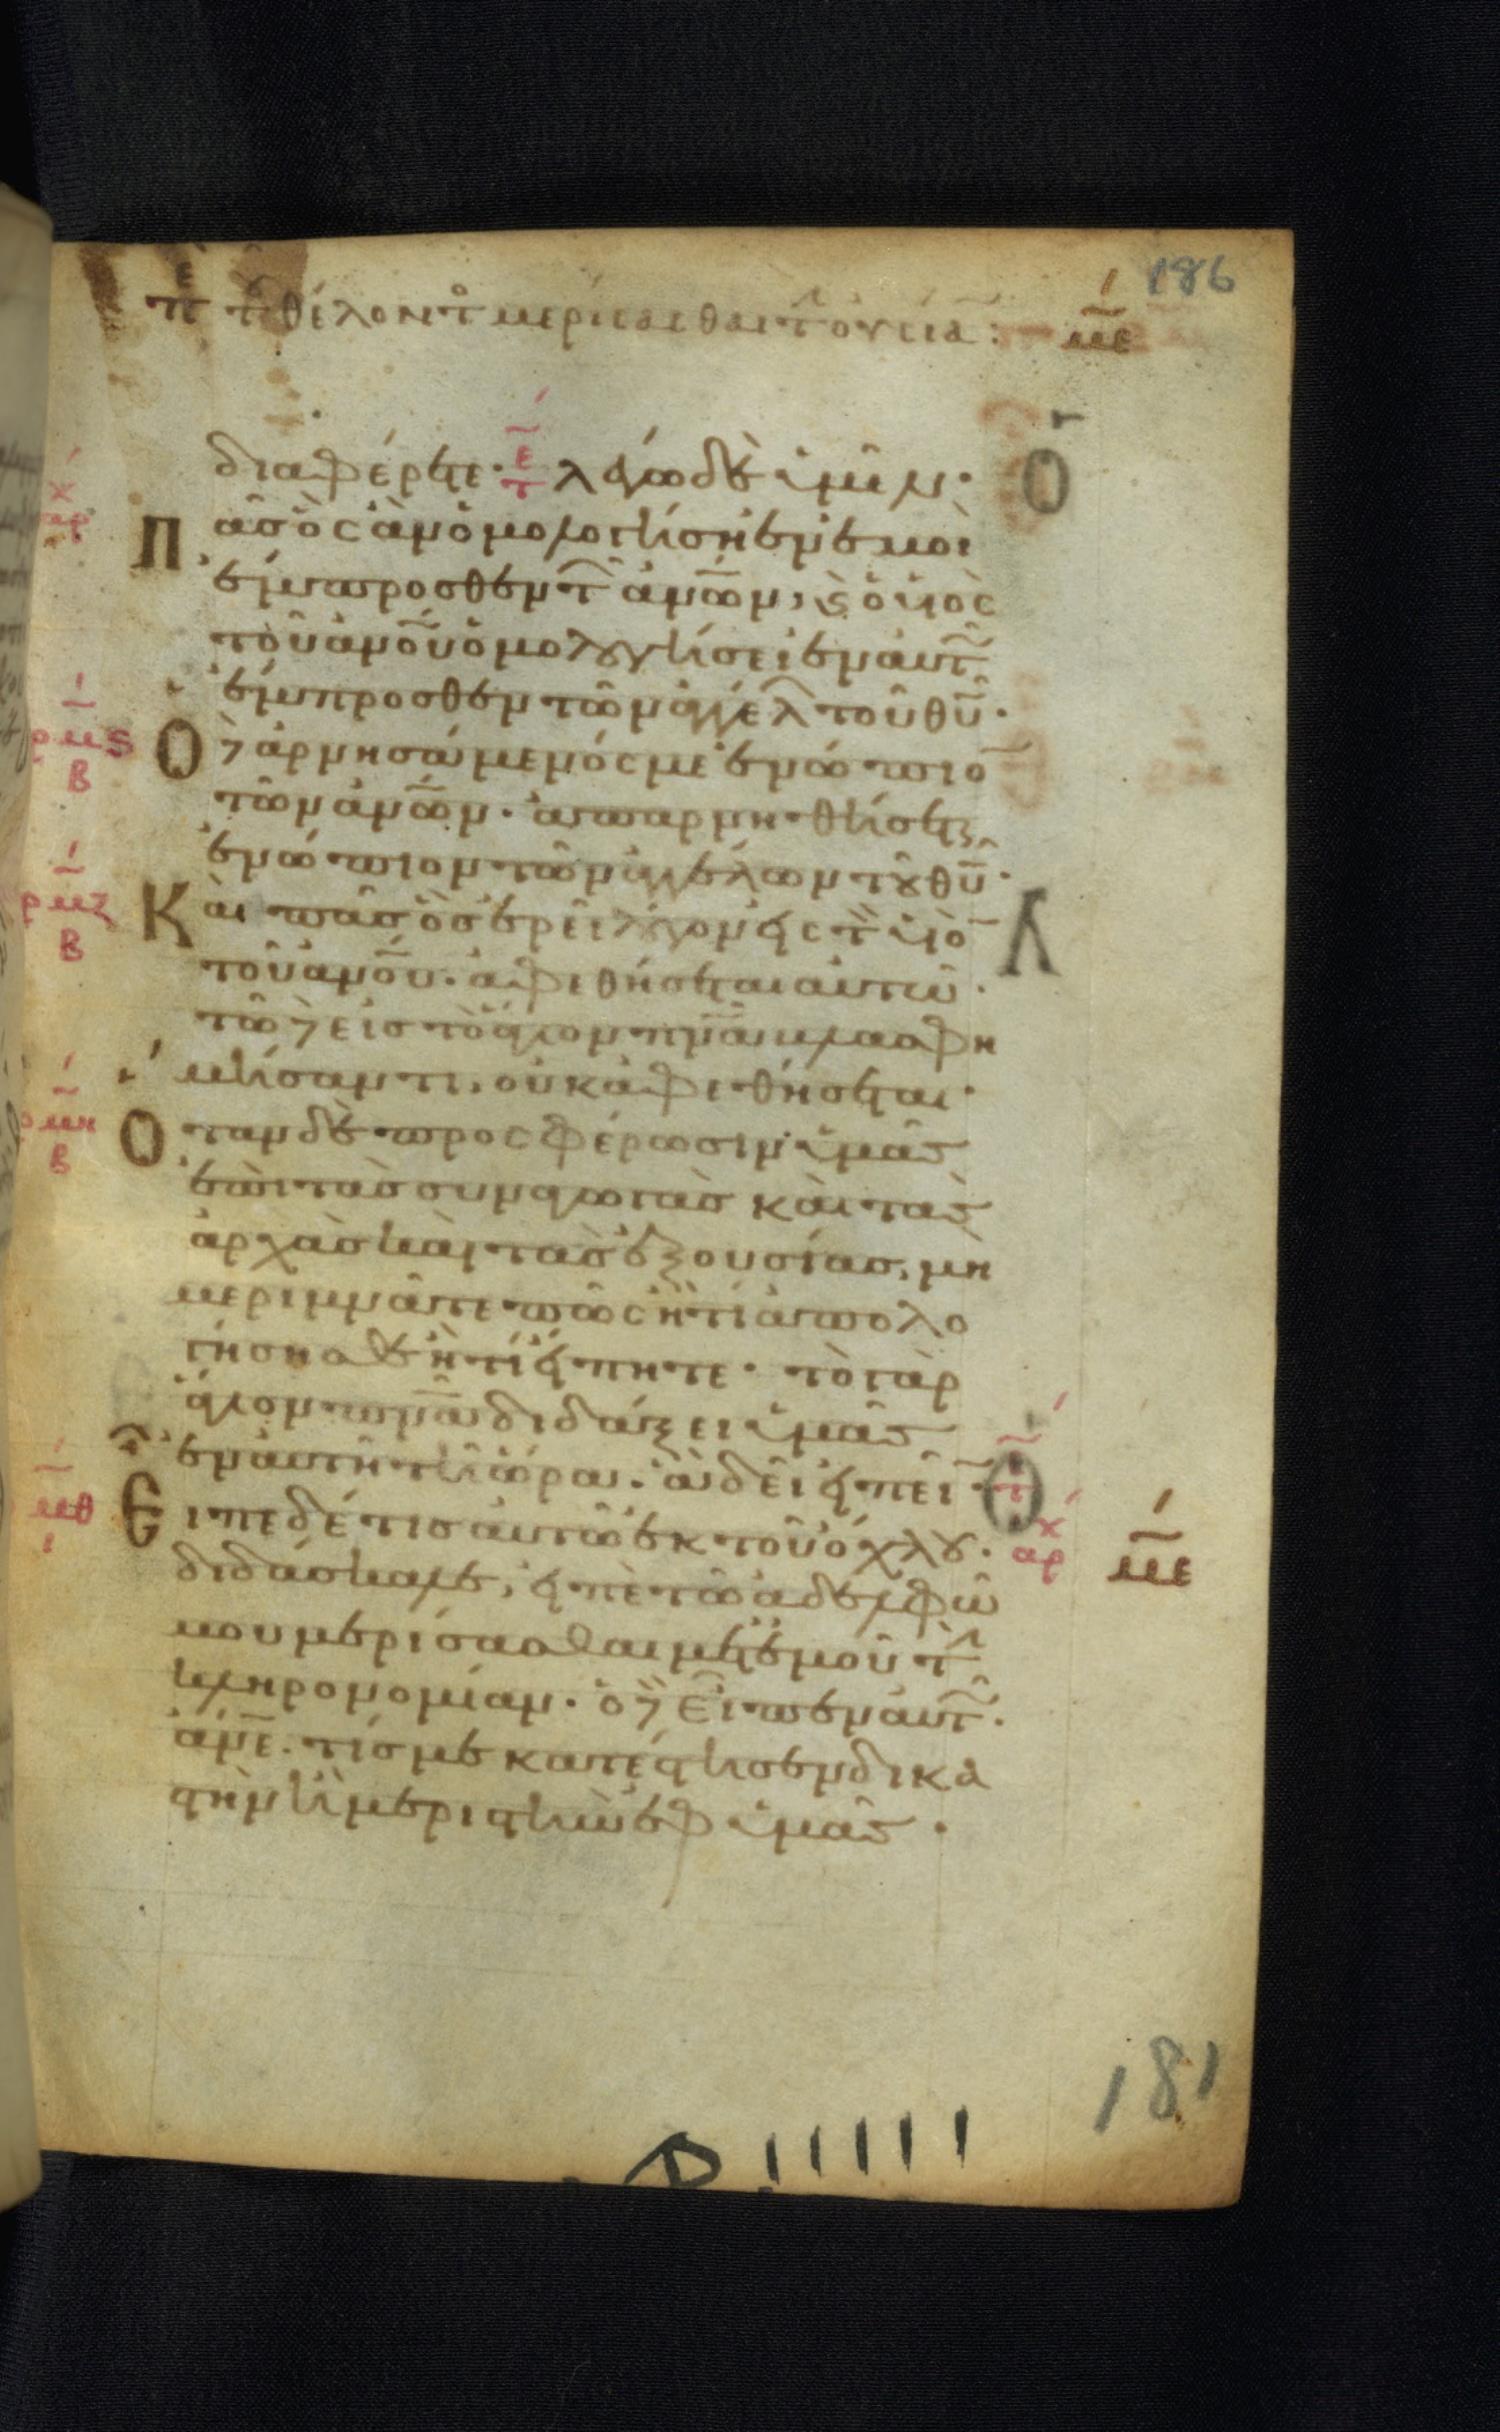 186
πε τοῦ θέλοντ μερίσασθαι τ οὐσίαν: με
διαφέρετε· λέγω δὲ ὑμῖν·
Πᾶς ὃς ἂν ὁμολογήσῃ ἐν ἐμοὶ
ἔμπροσθεν τ ἀνων, κ ὁ υἱὸς
τοῦ ἀνου ὁμολογήσει ἐν αὐτ
ἔμπροσθεν τῶν ἀγγέλ τοῦ θυ·
Ὁ δ ἀρνησάμενός με ἐνώπιον
τῶν ἀνων. ἀπαρνηθήσεται
ἐνώπιον τῶν ἀγγέλων τοῦ θυ·
Καὶ πᾶς ὃς ἐρεῖ λόγον εἰς τ υἱὸν
τοῦ ἀνου. ἀφεθήσεται αὐτῶ·
τῶ δ εἰς τὸ ἅγιον πνα βλασφη
μήσαντι, οὐκ ἀφεθήσεται·
Ὅταν δὲ προσφέρωσιν ὑμᾶς
ἐπὶ τὰς συναγωγὰς καὶ τὰς
ἀρχὰς καὶ τὰς ἐξουσίας, μὴ
μεριμνᾶτε πῶς ἢ τί ἀπολο
γήσησθε ἢ τί εἴπητε· τὸ γὰρ
ἅγιον πνα διδάξει ὑμᾶς
ἐν αὐτῆ τῆ ὥρα. ἃ δεῖ εἰπεῖν·
Εἶπε δέ τις αὐτῶ ἐκ τοῦ ὄχλου·
διδάσκαλε, εἰπὲ τῶ ἀδελφῶ
μου μερίσασθαι μετ ἐμοῦ τὴν
κληρονομίαν. ὁ δ εἶπεν αὐτ·
ἄνε. τίς με κατέστησεν δικα
στὴν ἢ μεριστὴν ἐφ ὑμᾶς·
με
181